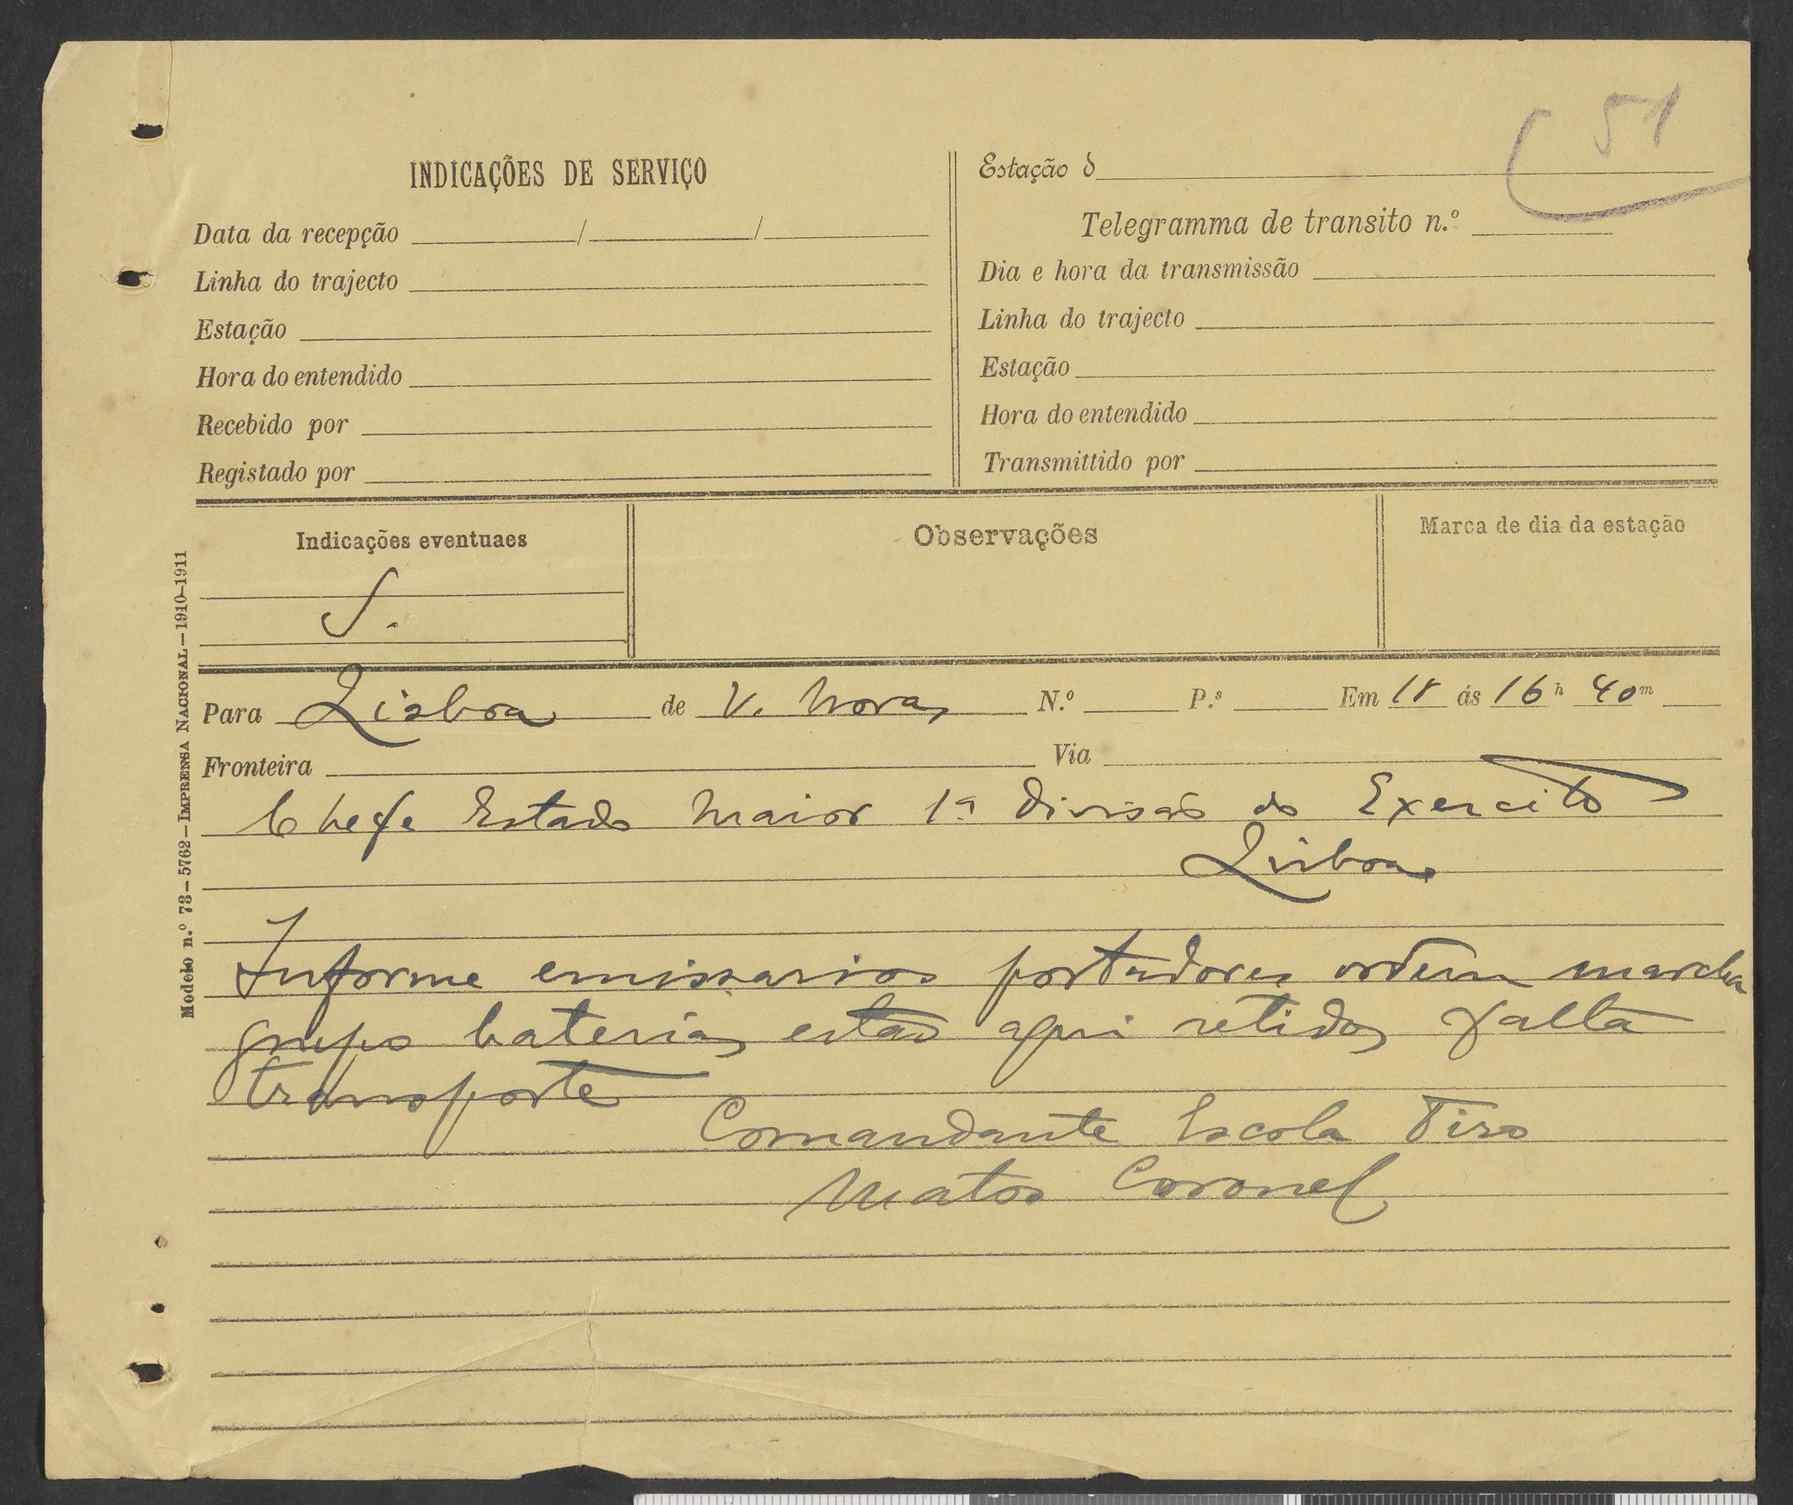 51
INDICAÇÕES DE SERVIÇO
Data da recepção / /
Linha do trajecto
Estação
Hora do entendido
Recebido por
Registado por
Estação d
Telegramma de transito n.º
Dia e hora da transmissão
Linha do trajecto
Estação
Hora do entendido
Transmittido por
Indicações eventuaes
S.
Observações
Marca de dia da estação
Modelo n.º 73—5762—IMPRENSA NACIONAL—1910-1911
Para Lisboa de V. Novas N.º P.s Em 18 ás 16h 40m
Fronteira Via
Chefe Estado Maior 1ª Divisão do Exercito
Lisboa
Informe emissarios portadores ordem marcha
grupo baterias estão aqui retidos falta
transporte
Comandante Escola Tiro
Matos Coronel